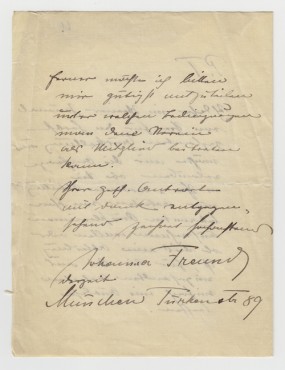 ferner möchte ich bitten
mir gütigst mitzutheilen
unter welchen Bedingungen
man dem Verein
als Mitglied beitreten
kann.
Ihrer gefl. Antwort
mit Dank entgegen
sehend zeichnet
Johanna Freund
derzeit
München Türkenstr 89